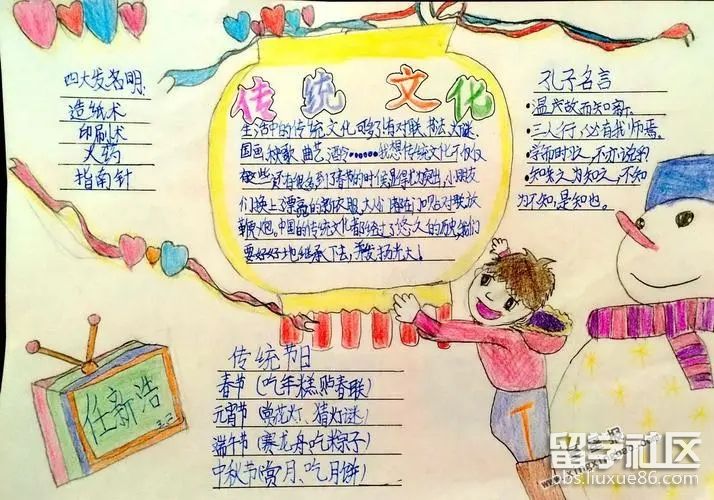 四大发名明:
造纸术
印刷术
火药
指南针
传统文化
生活中的传统文化可多了,有对联、书法、灯谜、
国画、秧歌、曲艺、酒令……我想传统文化不仅仅
有这些还有很多,到了春节的时候显得尤为突出,小朋友
们换上了漂亮的新衣服,大人们都在门口贴对联放
鞭炮。中国的传统文化都经过了悠久的历史,我们
要好好地继承下去,并发扬光大!
孔子名言
·温故而知新。
·三人行,必有我师焉。
·学而时习之,不亦说乎
·知之为知之,不知
为不知,是知也。
传统节日
春节(吃年糕贴春联)
元宵节(赏花灯、猜灯谜)
端午节(赛龙舟,吃粽子)
中秋节(赏月、吃月饼)
任新浩
T
留学社区
bbs.liuxue86.com